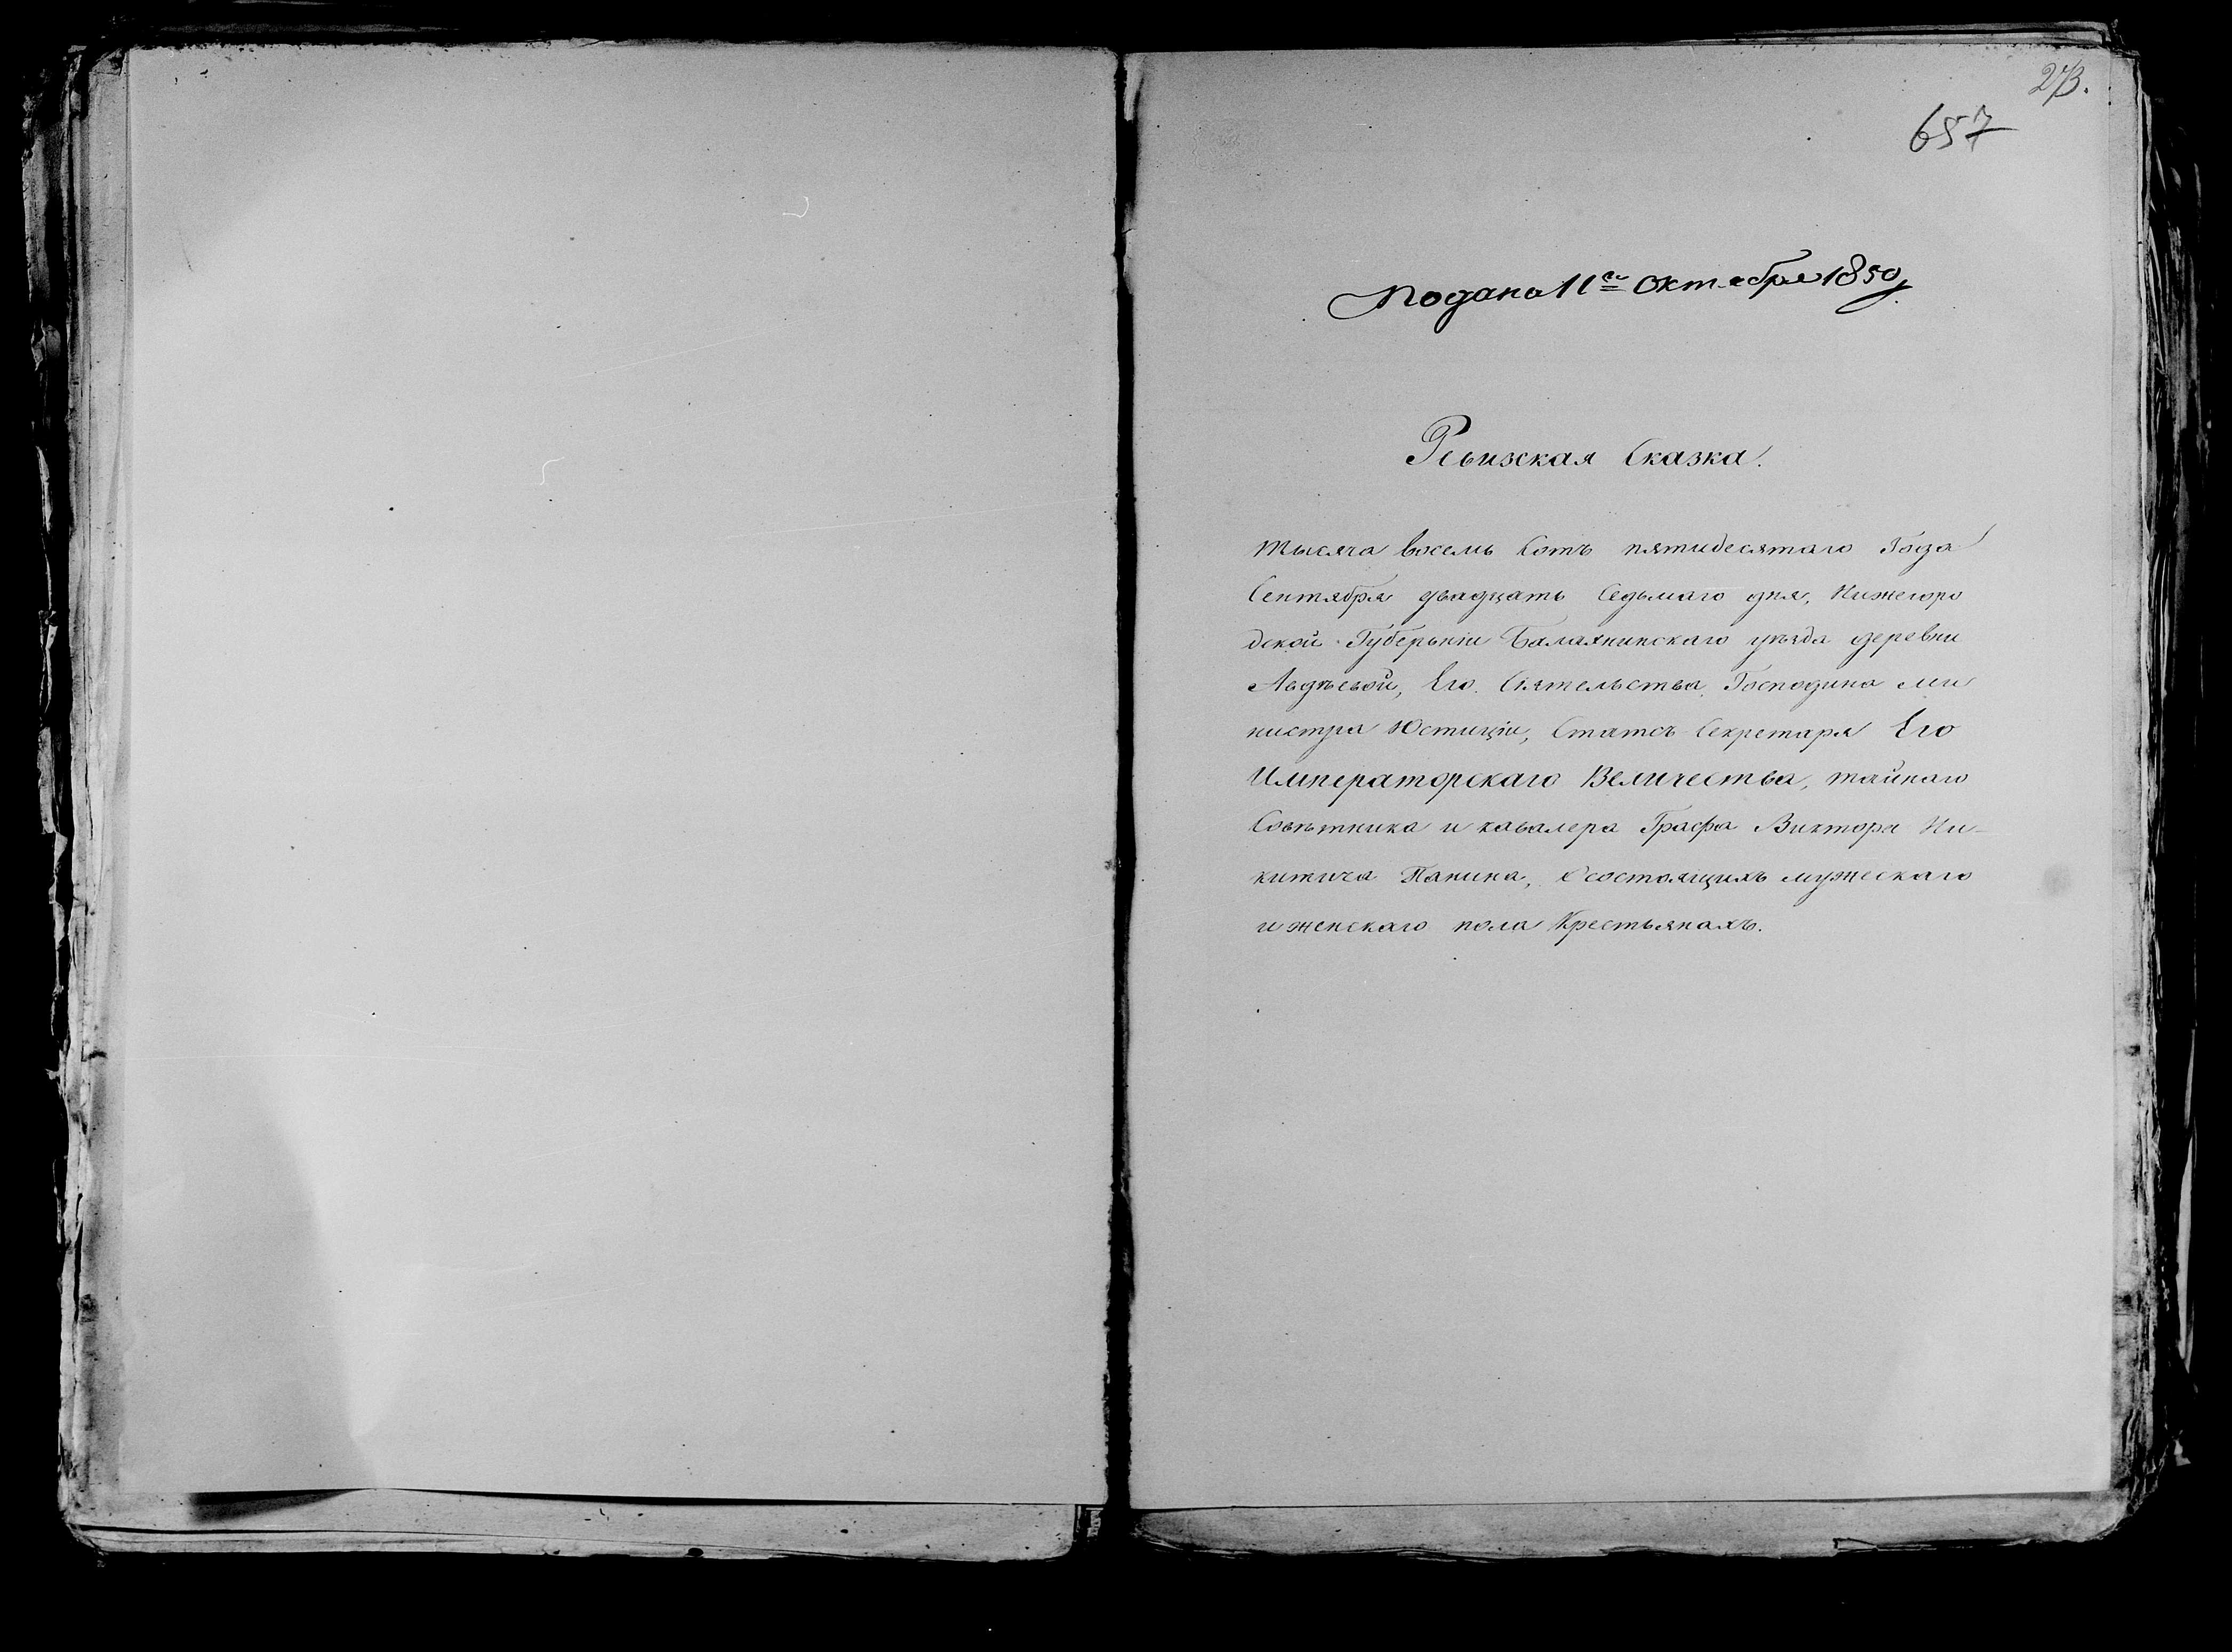 273.
657
Подана 11го Октября 1850 г.
Ревизская Сказка.
Тысяча восемь Сотъ пятидесятаго Года
Сентября двадцать Седьмаго дня, Нижегоро
дской Губерніи Балахнинскаго уѣзда деревни
Авдѣевой, Его Сіятельства Господина Ми
нистра Юстиціи, Статсъ Секретаря Его
Императорскаго Величества, тайнаго
Совѣтника и кавалера Графа Виктора Ни-
китича Панина, о состоящихъ мужескаго
и женскаго пола Крестьянахъ.